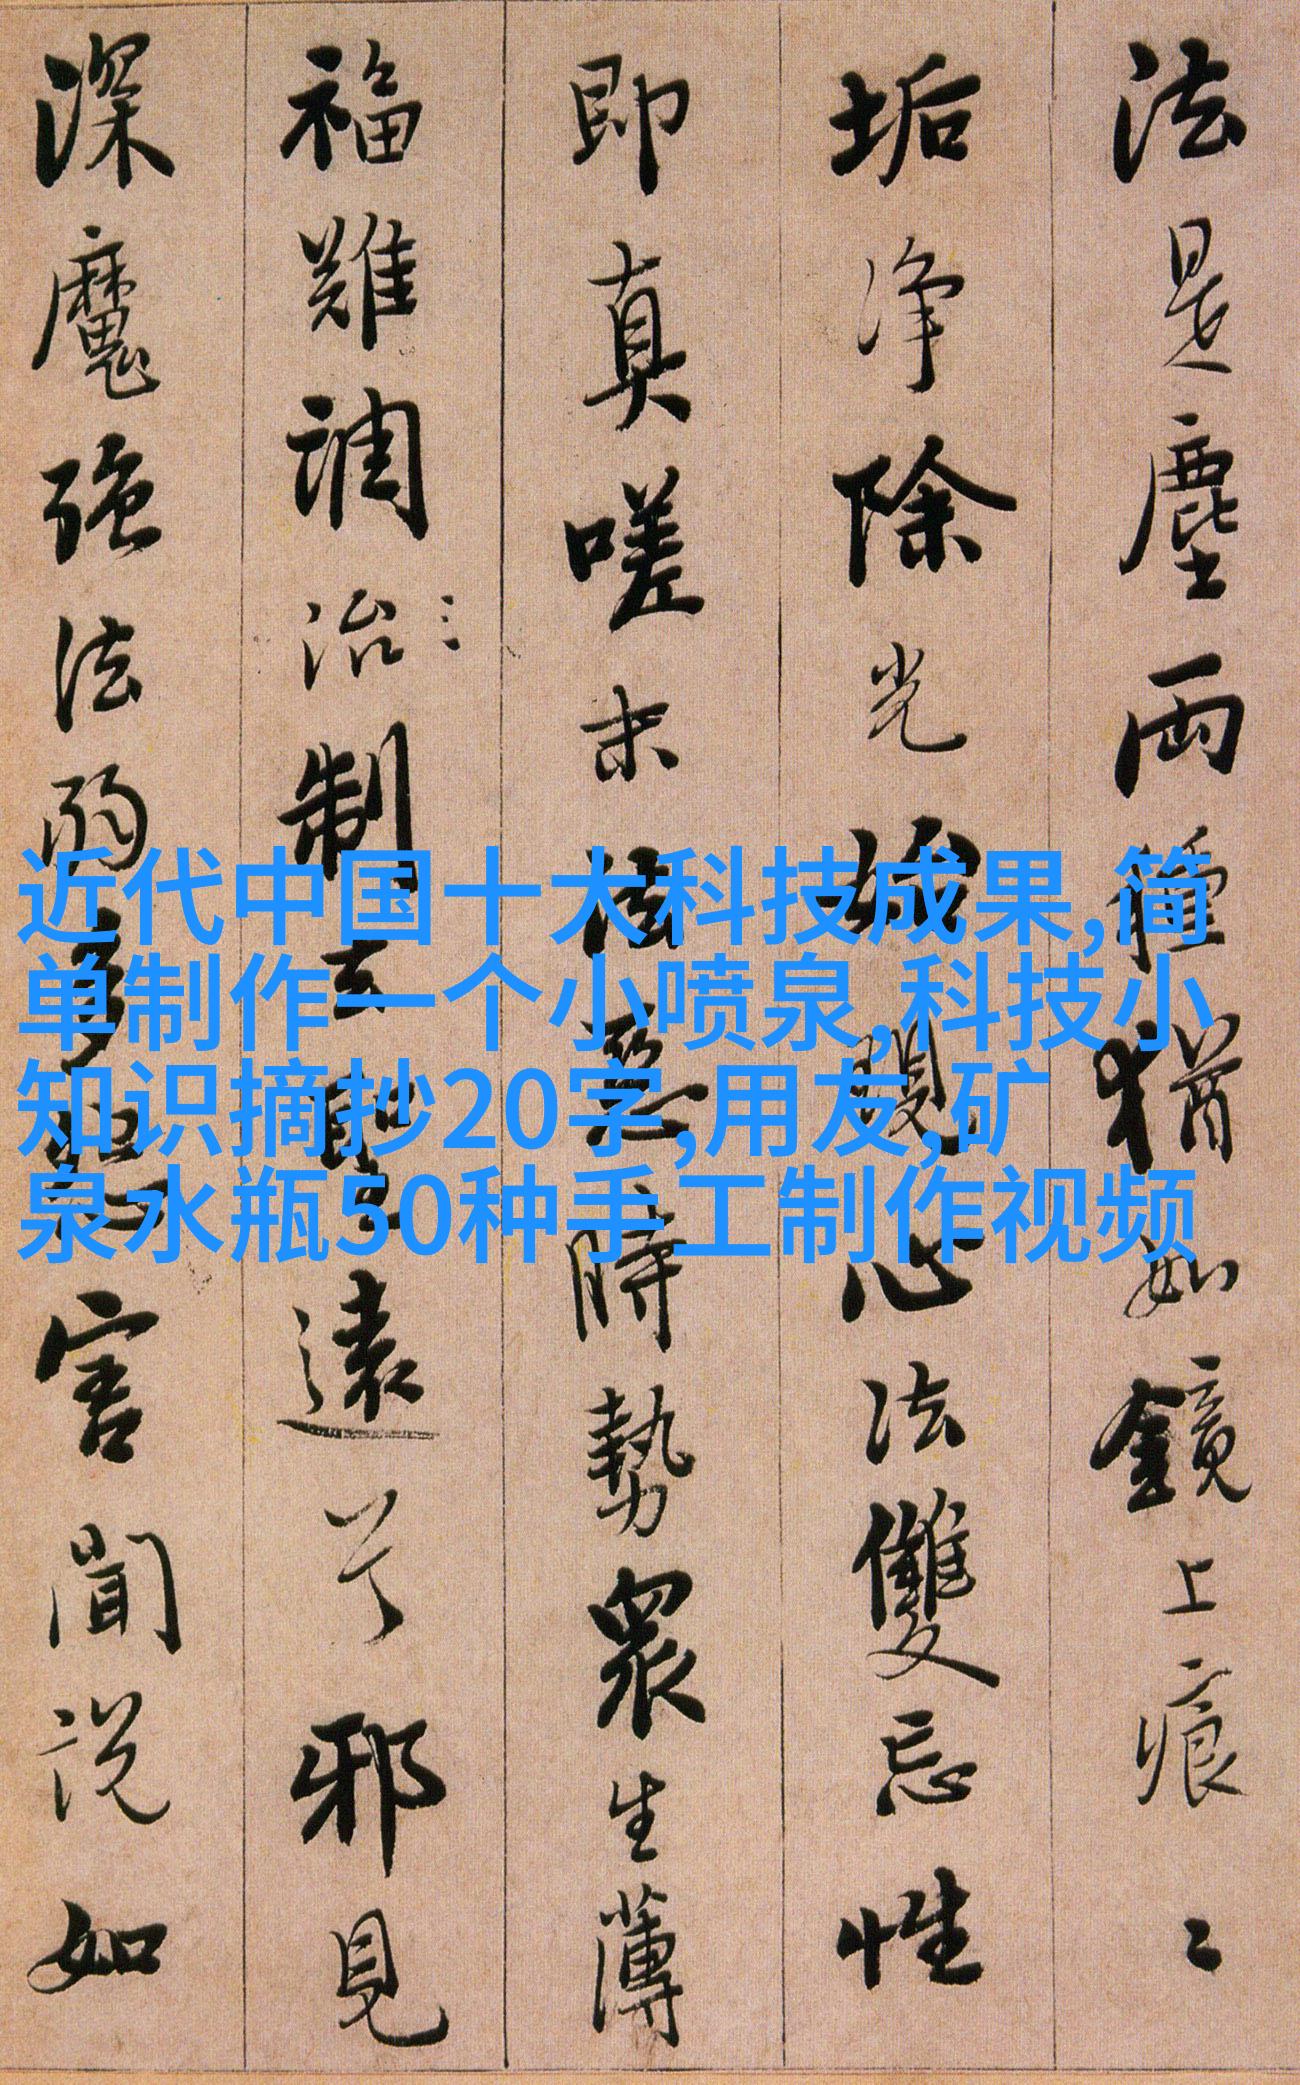 法是塵両種猶如鏡上痕〻
垢净除光始現心法雙忘性
即真嗟末法惡時勢衆生薄
福難調治制去聖遠兮邪見
深魔強法弱多怨害聞説如
近代中国十大科技成果,简
单制作一个小喷泉,科技小
知识摘抄20字,用友,矿
泉水瓶50种手工制作视频